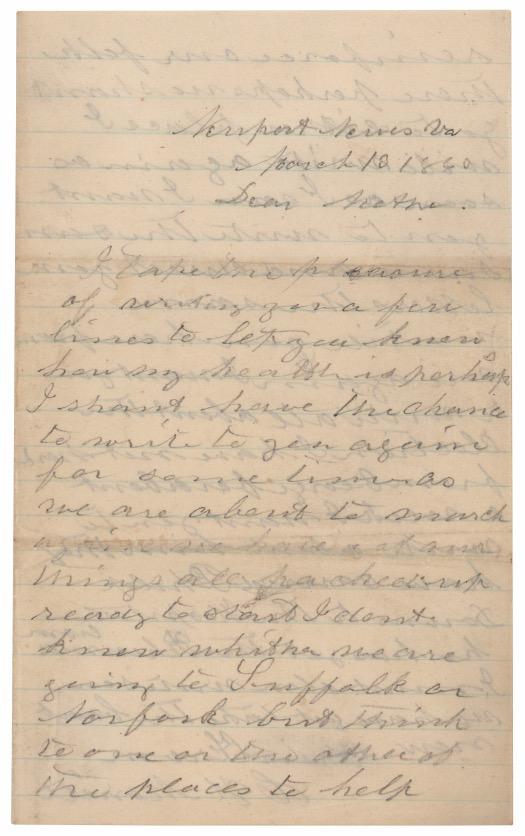 Newport News Va
March 13 18
Dear Mother.
I take the pleasure
of writing you a few
lines to let you know
how my health is perhaps
I shant have the chance
to write to you again
for some time as
we are about to march
again we have got our
things all packed up
ready to start I dont
know whither we are
going to Suffolk or
Norfork but think
to one or the other of
the places to help